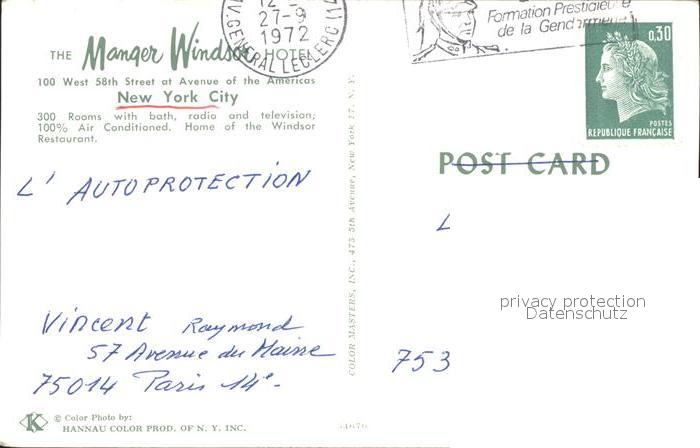 THE Manger Windsor HOTEL
100 West 58th Street at Avenue of the Americas
New York City
300 Rooms with bath, radio and television;
100% Air Conditioned. Home of the Windsor
Restaurant.
27-9
1972
AV. GENERAL LECLERC (14
Formation Prestigieuse
de la Gendarmerie
0,30
POSTES
REPUBLIQUE FRANÇAISE
POST CARD
L' AUTOPROTECTION
L
COLOR MASTERS, INC., 475-5th Avenue, New York 17, N. Y.
privacy protection
Datenschutz
Vincent Raymond
57 Avenue du Maine
75014 Paris 14e.
753
K
© Color Photo by:
HANNAU COLOR PROD. OF N. Y. INC.